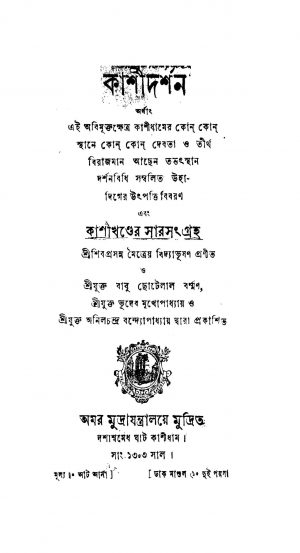 কাশীদর্শন
অর্থাৎ
এই অবিমুক্তক্ষেত্র কাশীধামের কোন্ কোন্
স্থানে কোন্ কোন্ দেবতা ও তীর্থ
বিরাজমান আছেন তত্তৎস্থান
দর্শনবিধি সম্বলিত উহা-
দিগের উৎপত্তি বিবরণ
এবং
কাশীখণ্ডের সারসংগ্রহ
শ্রীশিবপ্রসন্ন মৈত্রেয় বিদ্যাভূষণ প্রণীত
ও
শ্রীযুক্ত বাবু ছোটেলাল বর্ম্মণ,
শ্রীযুক্ত ভূদেব মুখোপাধ্যায় ও
শ্রীযুক্ত অনিলচন্দ্র বন্দ্যোপাধ্যায় দ্বারা প্রকাশিত
অমর মুদ্রাযন্ত্রালয়ে মুদ্রিত
দশাশ্বমেধ ঘাট কাশীধাম।
সাং ১৩০৩ সাল।
মূল্য ॥০ আট আনা] [ডাক মাশুল ৴০ দুই পয়সা